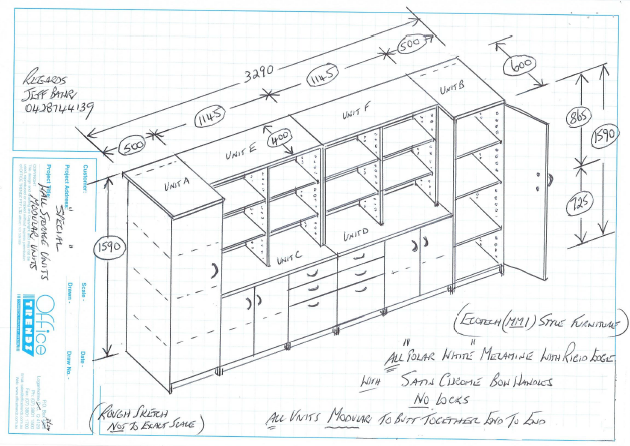 REGARDS
JEFF
3290
500
1145
1145
500
600
UNIT A
UNIT E
400
UNIT F
UNIT B
UNIT C
UNIT D
1590
865
725
1590
Customer:
Project Address:
Project Title:
"SPECIAL"
WALL STORAGE UNITS
MODULAR UNITS
Scale -
Drawn -
Date -
Drw No. -
Office
TRENDS
(ECOTECH (MM1) STYLE FURNITURE)
ALL "POLAR WHITE" MELAMINE WITH RIGID EDGE
WITH SATIN CHROME BOW HANDLES
NO LOCKS
ALL UNITS MODULAR TO BUTT TOGETHER END TO END
(ROUGH SKETCH
NOT TO EXACT SCALE)